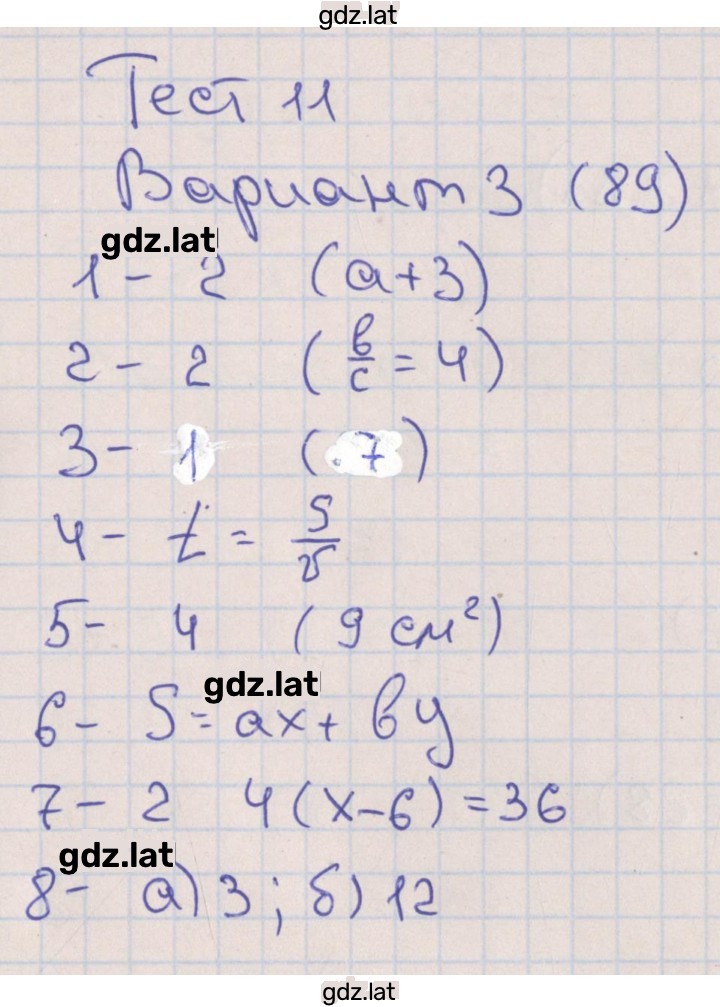 gdz.lat
Тест 11
Вариант 3 (89)
gdz.lat
1 - 2 (a+3)
2 - 2 (в/с = 4)
3 - 1 (.7)
4 - t = S/v
5 - 4 (9 см²)
gdz.lat
6 - S = ax + by
7 - 2 4(x-6) = 36
gdz.lat
8 - а) 3; б) 12
gdz.lat